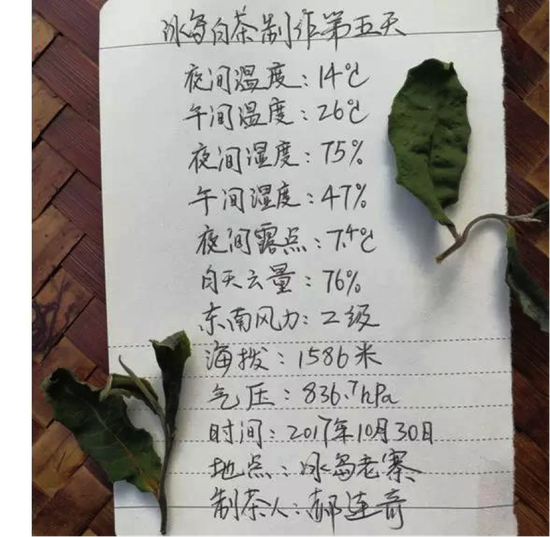 冰岛白茶制作第五天
夜间温度：14℃
午间温度：26℃
夜间湿度：75%
午间湿度：47%
夜间露点：7.4℃
白天云量：76%
东南风力：二级
海拨：1586米
气压：836.7hpa
时间：2017年10月30日
地点：冰岛老寨
制茶人：郝连奇